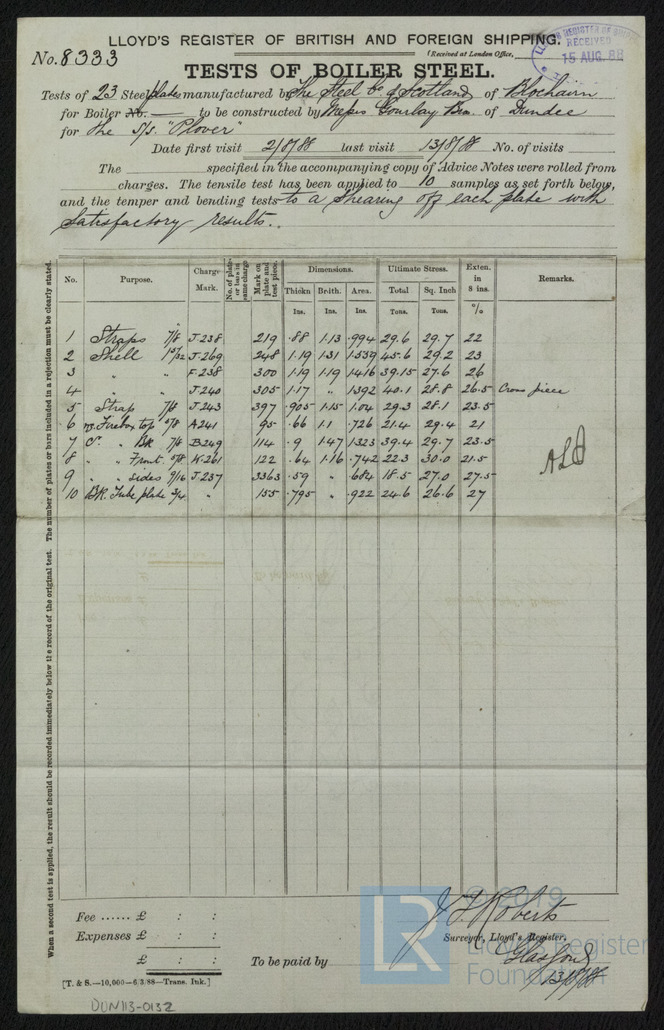 LLOYD'S REGISTER OF BRITISH AND FOREIGN SHIPPING.
No. 8333
(Received at London Office,
RECEIVED
15 AUG. 88
TESTS OF BOILER STEEL.
Tests of 23 Steel plates manufactured by The Steel Co. of Scotland of Blochairn
for Boiler No. — to be constructed by Messrs Gourlay Bros. of Dundee
for the S/S. "Plover"
Date first visit 2/8/88 last visit 13/8/88 No. of visits
The specified in the accompanying copy of Advice Notes were rolled from
charges. The tensile test has been applied to 10 samples as set forth below,
and the temper and bending tests to a shearing off each plate with
satisfactory results.
No. Purpose. Charge Mark. No. of plates or bars in same charge Mark on plate and test piece. Dimensions. Ultimate Stress. Exten. in 8 ins. Remarks.
Thickn Br'dth. Area. Total Sq. Inch
Ins. Ins. Ins. Tons. Tons. %
1 Straps 7/8 J.238 219 .88 1.13 .994 29.6 29.7 22
2 Shell 15/32 J.269 248 1.19 1.31 1.559 45.6 29.2 23
3 " " F.238 300 1.19 1.19 1.416 39.15 27.6 26
4 " " J.240 305 1.17 " 1.392 40.1 28.8 26.5 Cross piece
5 Strap 7/8 J.243 397 .905 1.15 1.04 29.3 28.1 23.5
6 Firebox top 5/8 A241 95 .66 1.1 .726 21.4 29.4 21
7 C. " Bk 7/8 B249 114 .9 1.47 1.323 39.4 29.7 23.5
8 " " Front 5/8 K.261 122 .64 1.16 .742 22.3 30.0 21.5
9 " " sides 9/16 J.237 3363 .59 " .684 18.5 27.0 27.5
10 Bk. Tube plate 3/4 " 155 .795 " .922 24.6 26.6 27
When a second test is applied, the result should be recorded immediately below the record of the original test. The number of plates or bars included in a rejection must be clearly stated.
Fee ...... £ : :
Expenses £ : :
£ : :
To be paid by
J. F. Roberts
Surveyor, Lloyd's Register.
Glasgow
13/8/88
[T. & S.—10,000—6/3/88—Trans. Ink.]
DUN113-0132
LR
© 2019
Lloyd's Register
Foundation